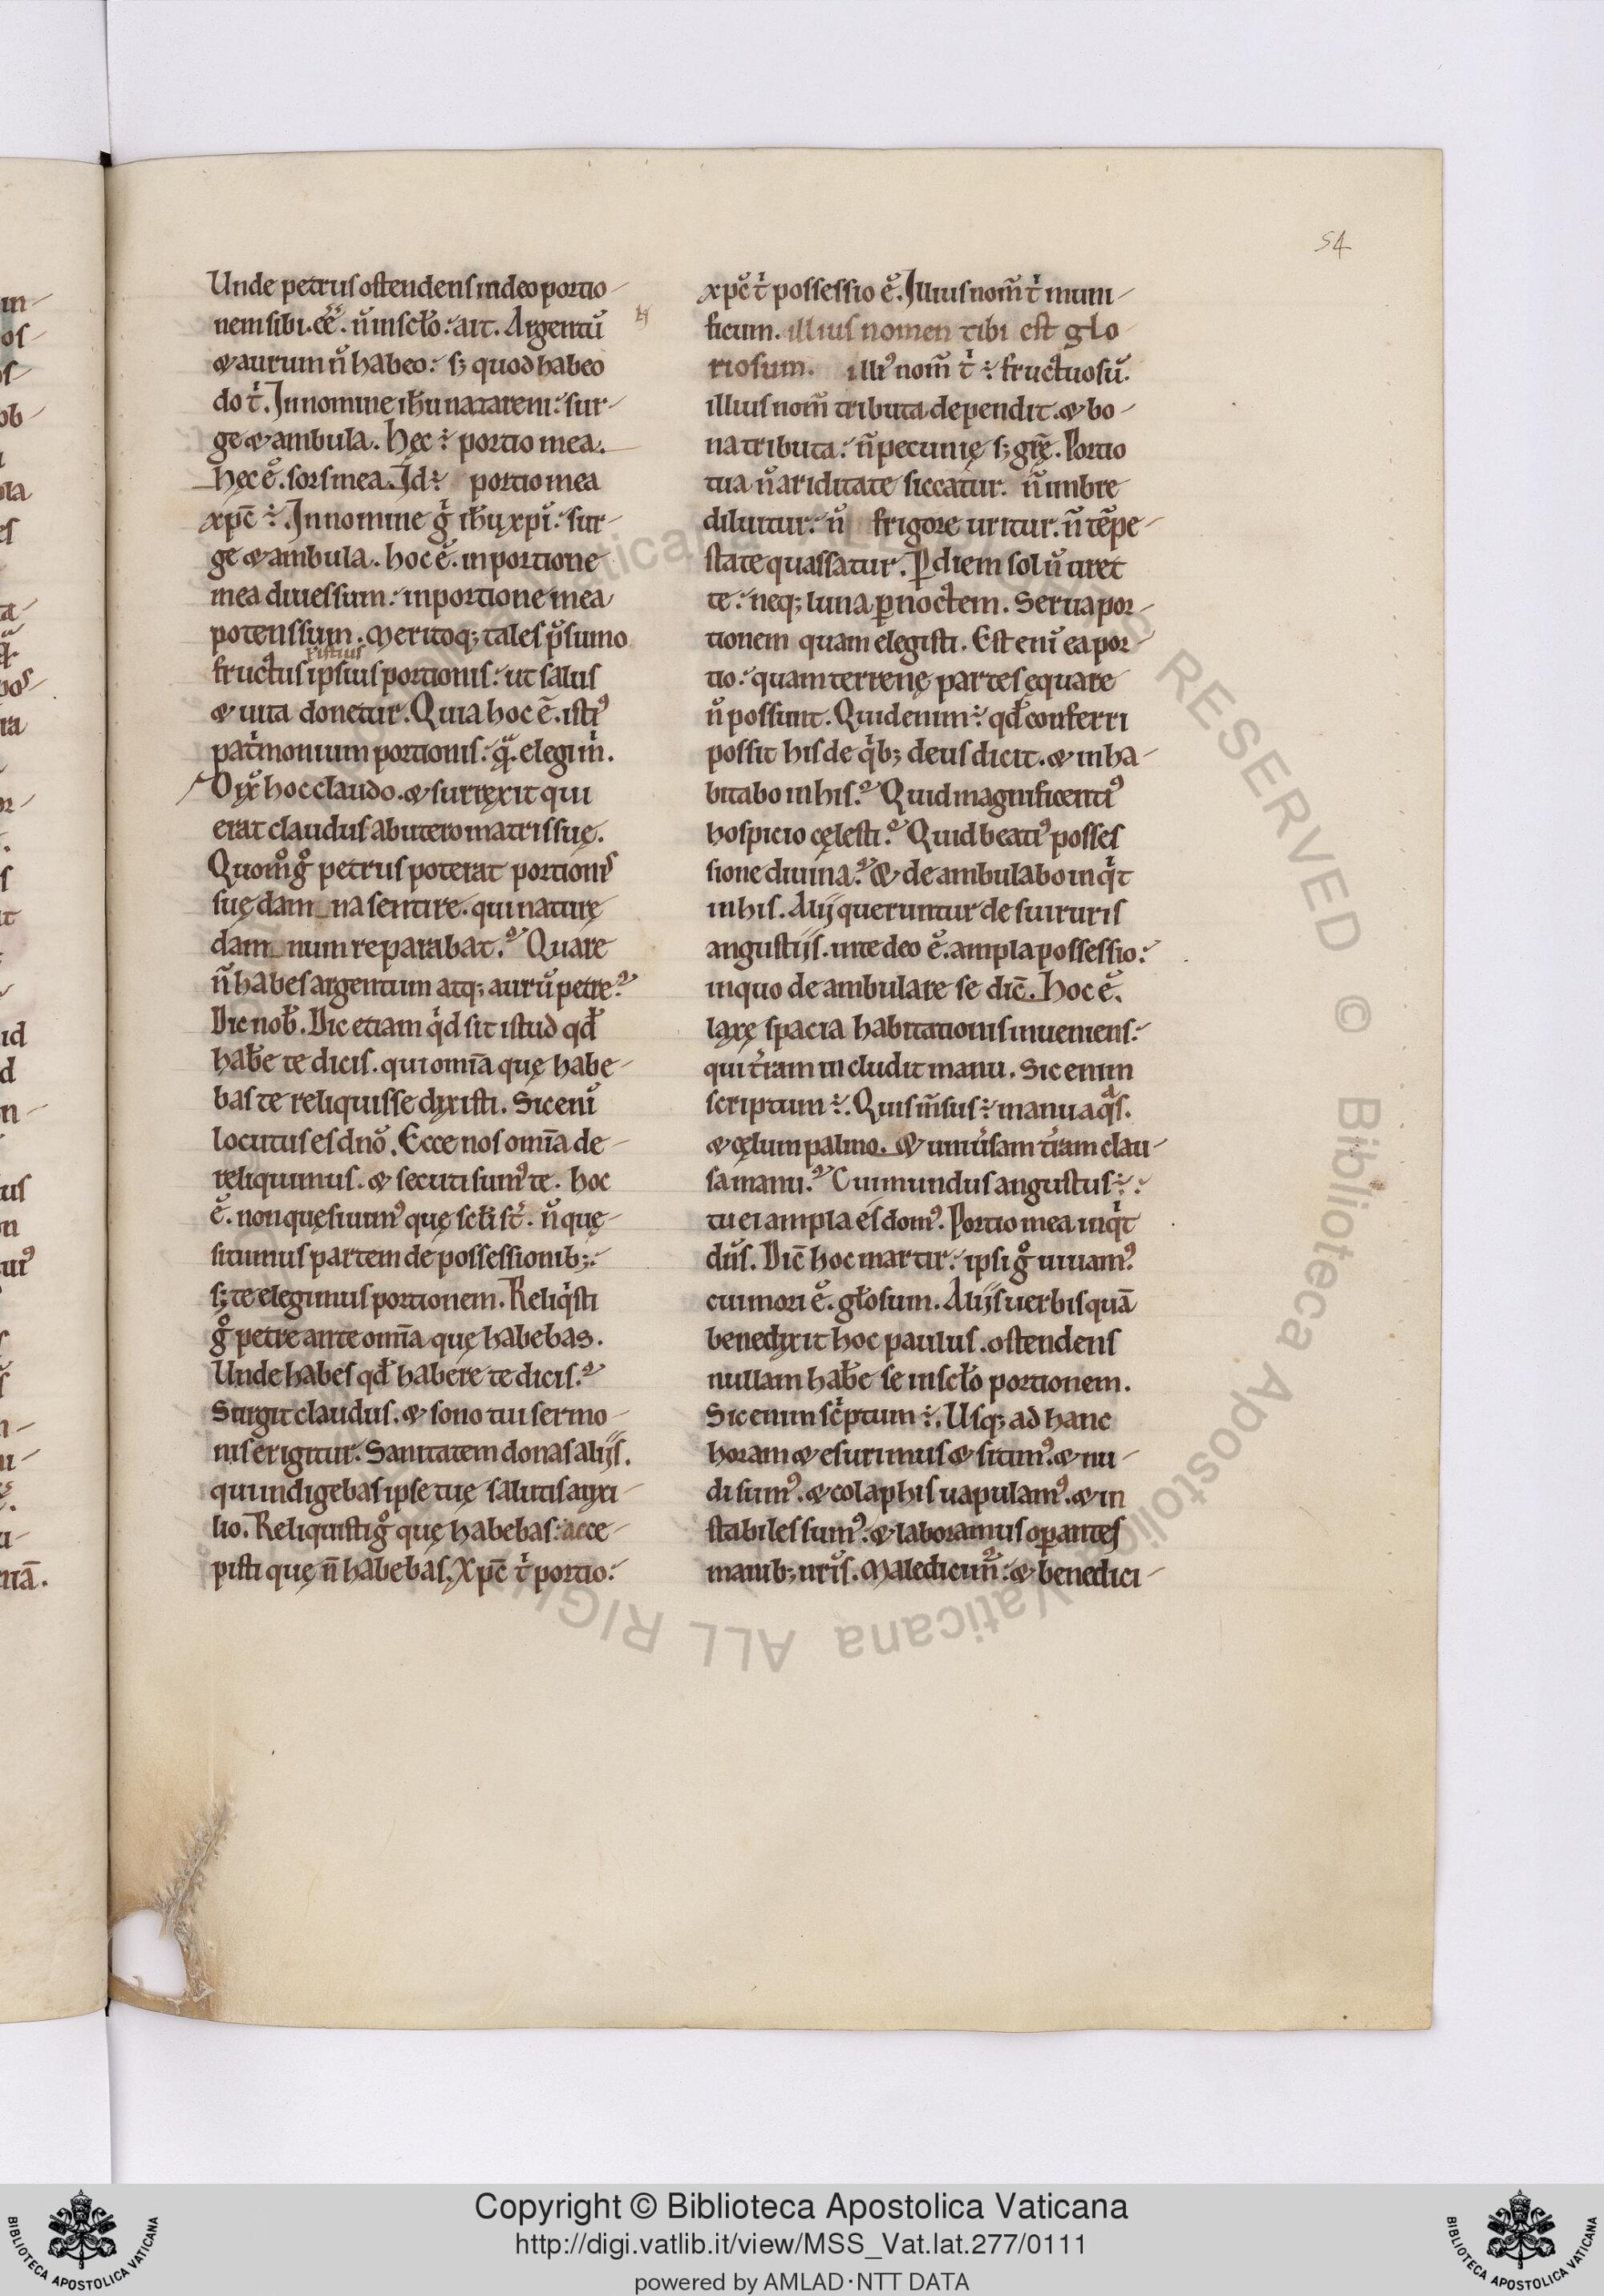 54
Unde petrus ostendens in deo portio-
nem sibi. eē. n̄ in sclo: ait. Argentū
& aurum n̄ habeo: s; quod habeo
do t'. In nomine ihu nazareni: sur-
ge & ambula. Hęc ÷ portio mea.
Hęc ē. sors mea. Id ÷ portio mea
xpc̄ ÷. In nomine g' ihu xpi: sur-
ge & ambula. hoc ē. in portione
mea diues sum: in portione mea
potens sum. Meritoq; tales p̄sumo
fructus ipsius portionis: ut salus
& uita donetur. Quia hoc ē. isti9
pat'monium portionis: q̄. elegim'.
Dix̄ hoc claudo. & surręxit qui
erat claudus ab utero matris suę.
Quom̊g° petrus poterat portionis
suę dam_na sentire. qui naturę
dam_num reparabat.? Quare
n̄ habes argentum atq; aurū petre.?
Dic nob̄. Dic etiam q'd sit istud qd̄
habe te dicis. qui omīa quę habe-
bas te reliquisse dixisti. Sic enī
locutus es dnō. Ecce nos omīa de-
reliquimus. & secuti sum9 te. hoc
ē. non quęsiuim9 quę scłi st'. n̄ quę-
siuimus partem de possessionib;:
s; te elegimus portionem. Reliq'sti
g° petre ante omīa quę habebas.
Unde habes qd̄ habere te dicis.?
Surgit claudus. & sono tui sermo-
nis erigitur. Sanitatem donas alijs.
qui indigebas ipse tuę salutis auxi-
lio. Reliquisti g° quę habebas: acce-
pisti quę n̄ habebas. Xpc̄ t' portio:
xpc̄ t' possessio ē. Illius nom̄ t' muni-
ficum. illius nomen tibi est glo
riosum. illi9 nom̄ t' ÷ fructuosū.
illius nom̄ tributa dependit. & bo-
na tributa: n̄ pecunię s; grę̄. Portio
tua n̄ ariditate siccatur. n̄ imbre
diluitur: n̄ frigore uritur. n̄ tēpe-
state quassatur. P diem sol n̄ uret
te: neq; luna p noctem. Serua por-
tionem quam elegisti. Est enī ea por-
tio: quam terrenę partes ęquare
n̄ possunt. Quid enim ÷ qd̄ conferri
possit his de q'b; deus dicit. & inha-
bitabo in his.? Quid magnificenti9
hospicio cęlesti.? Quid beati9 posses
sione diuina.? & deambulabo inq't
in his. Alij queruntur de sui ruris
angustijs. in te deo ē. ampla possessio:
in quo deambulare se dic̄. Hoc ē.
laxę spacia habitationis inueniens:
qui t'ram includit manu. Sic enim
scriptum ÷. Quis m̄sus ÷ manu aq̄s.
& cęlum palmo. & uniu'sam t'ram clau-
sa manu.? Cui mundus angustus ÷:
tu ei ampla es dom9. Portio mea inq't
dūs. Dic̄ hoc martir: ipsi g° uiuam9
cui mori ē. głosum. Alijs uerbis quā
bene dixit hoc paulus. ostendens
nullam habe se in scło portionem.
Sic enim sc'ptum ÷. Usq; ad hanc
horam & esurimus & sitim9. & nu-
di sum9. & colaphis uapulam9. & in
stabiles sum9: & laboramus opantes
manib; nr̄is. Maledicim̄: & benedici-
Copyright © Biblioteca Apostolica Vaticana
http://digi.vatlib.it/view/MSS_Vat.lat.277/0111
powered by AMLAD·NTT DATA
BIBLIOTECA APOSTOLICA VATICANA
BIBLIOTECA APOSTOLICA VATICANA